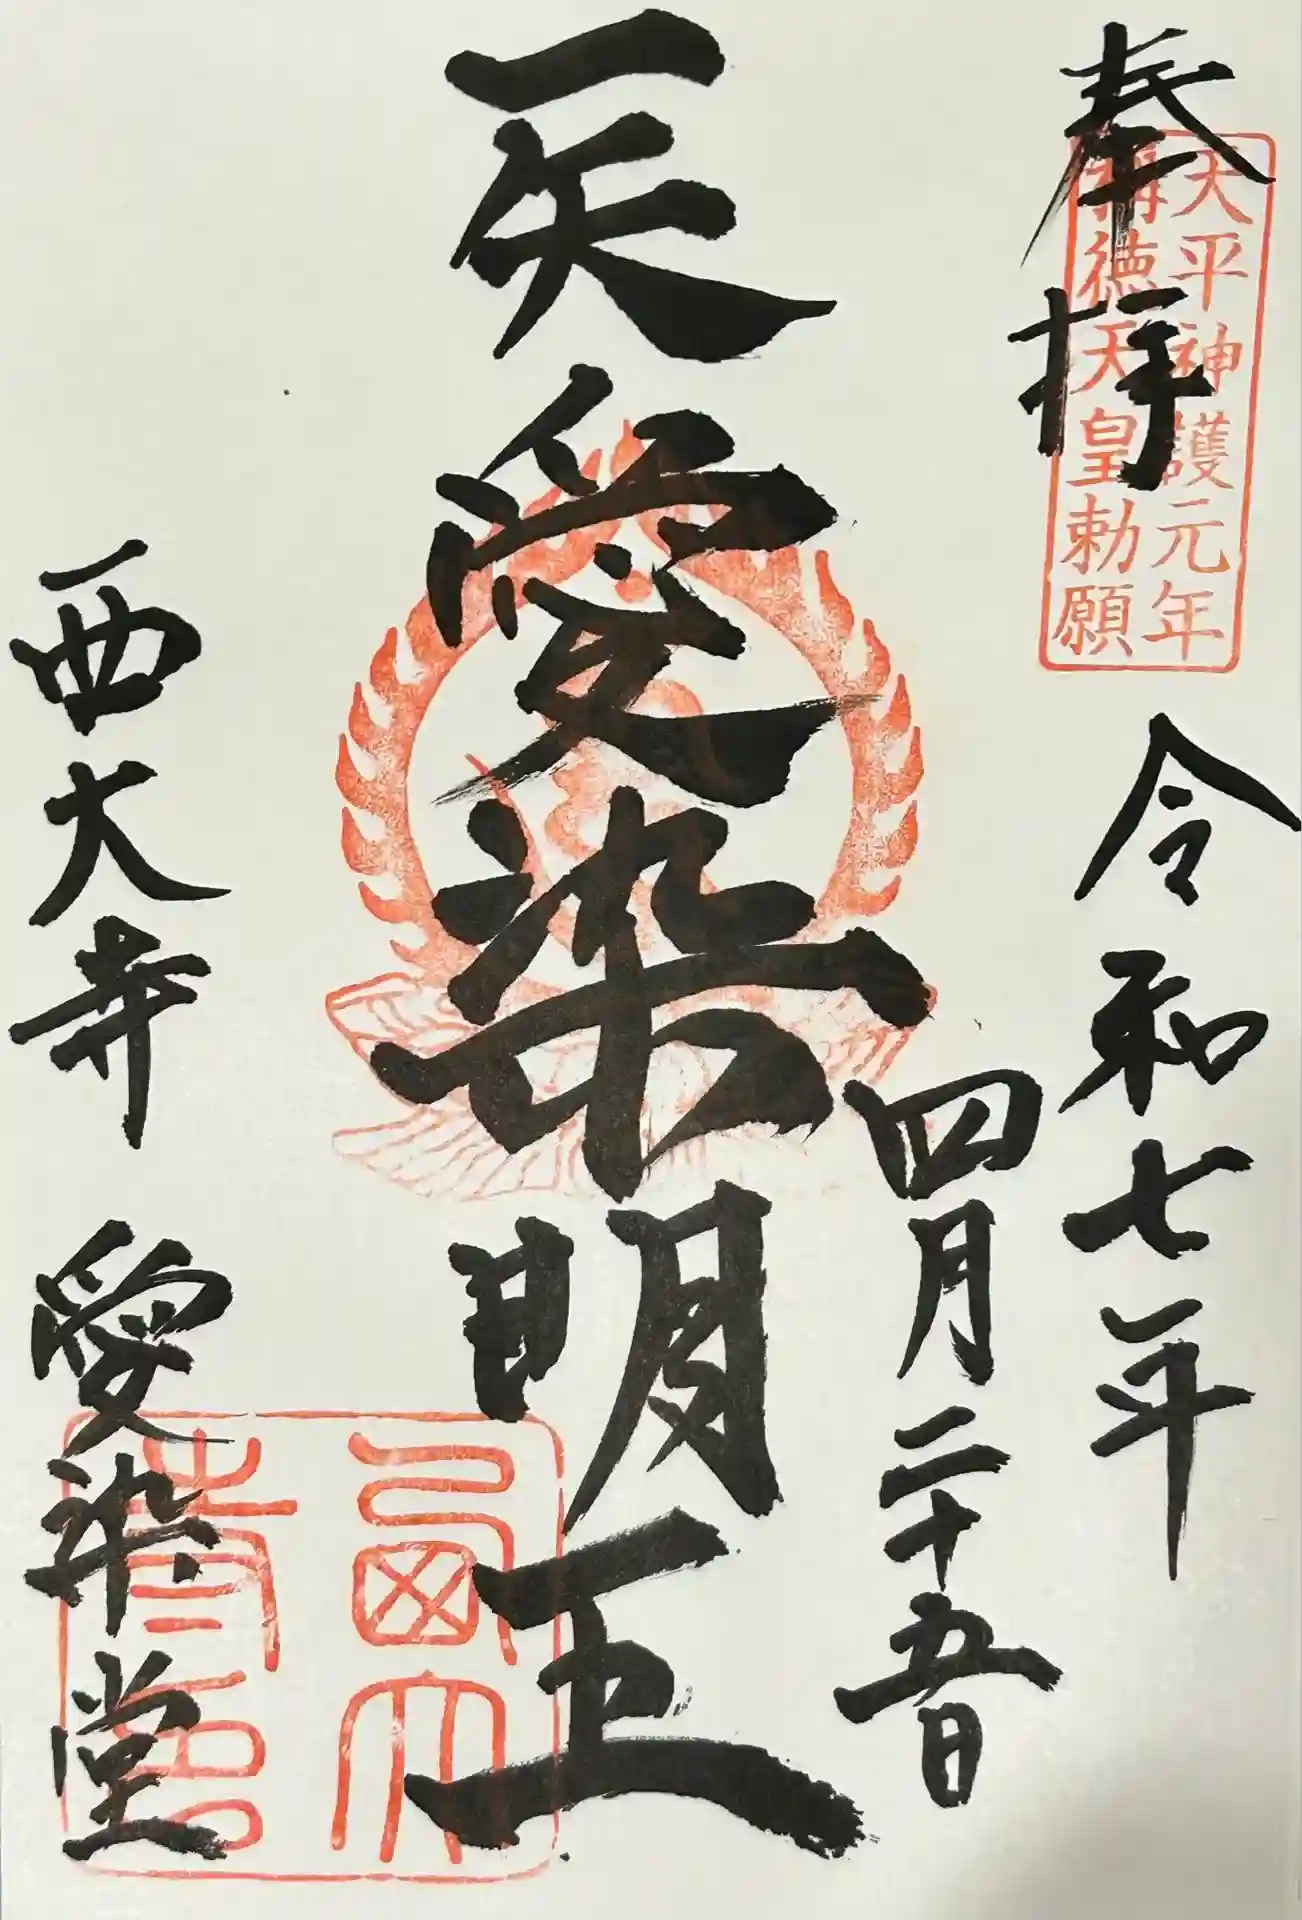 奉拝
天平神護元年
稱徳天皇勅願
令和七年
四月二十五日
一矢愛染明王
西大寺 愛染堂
西大
寺印